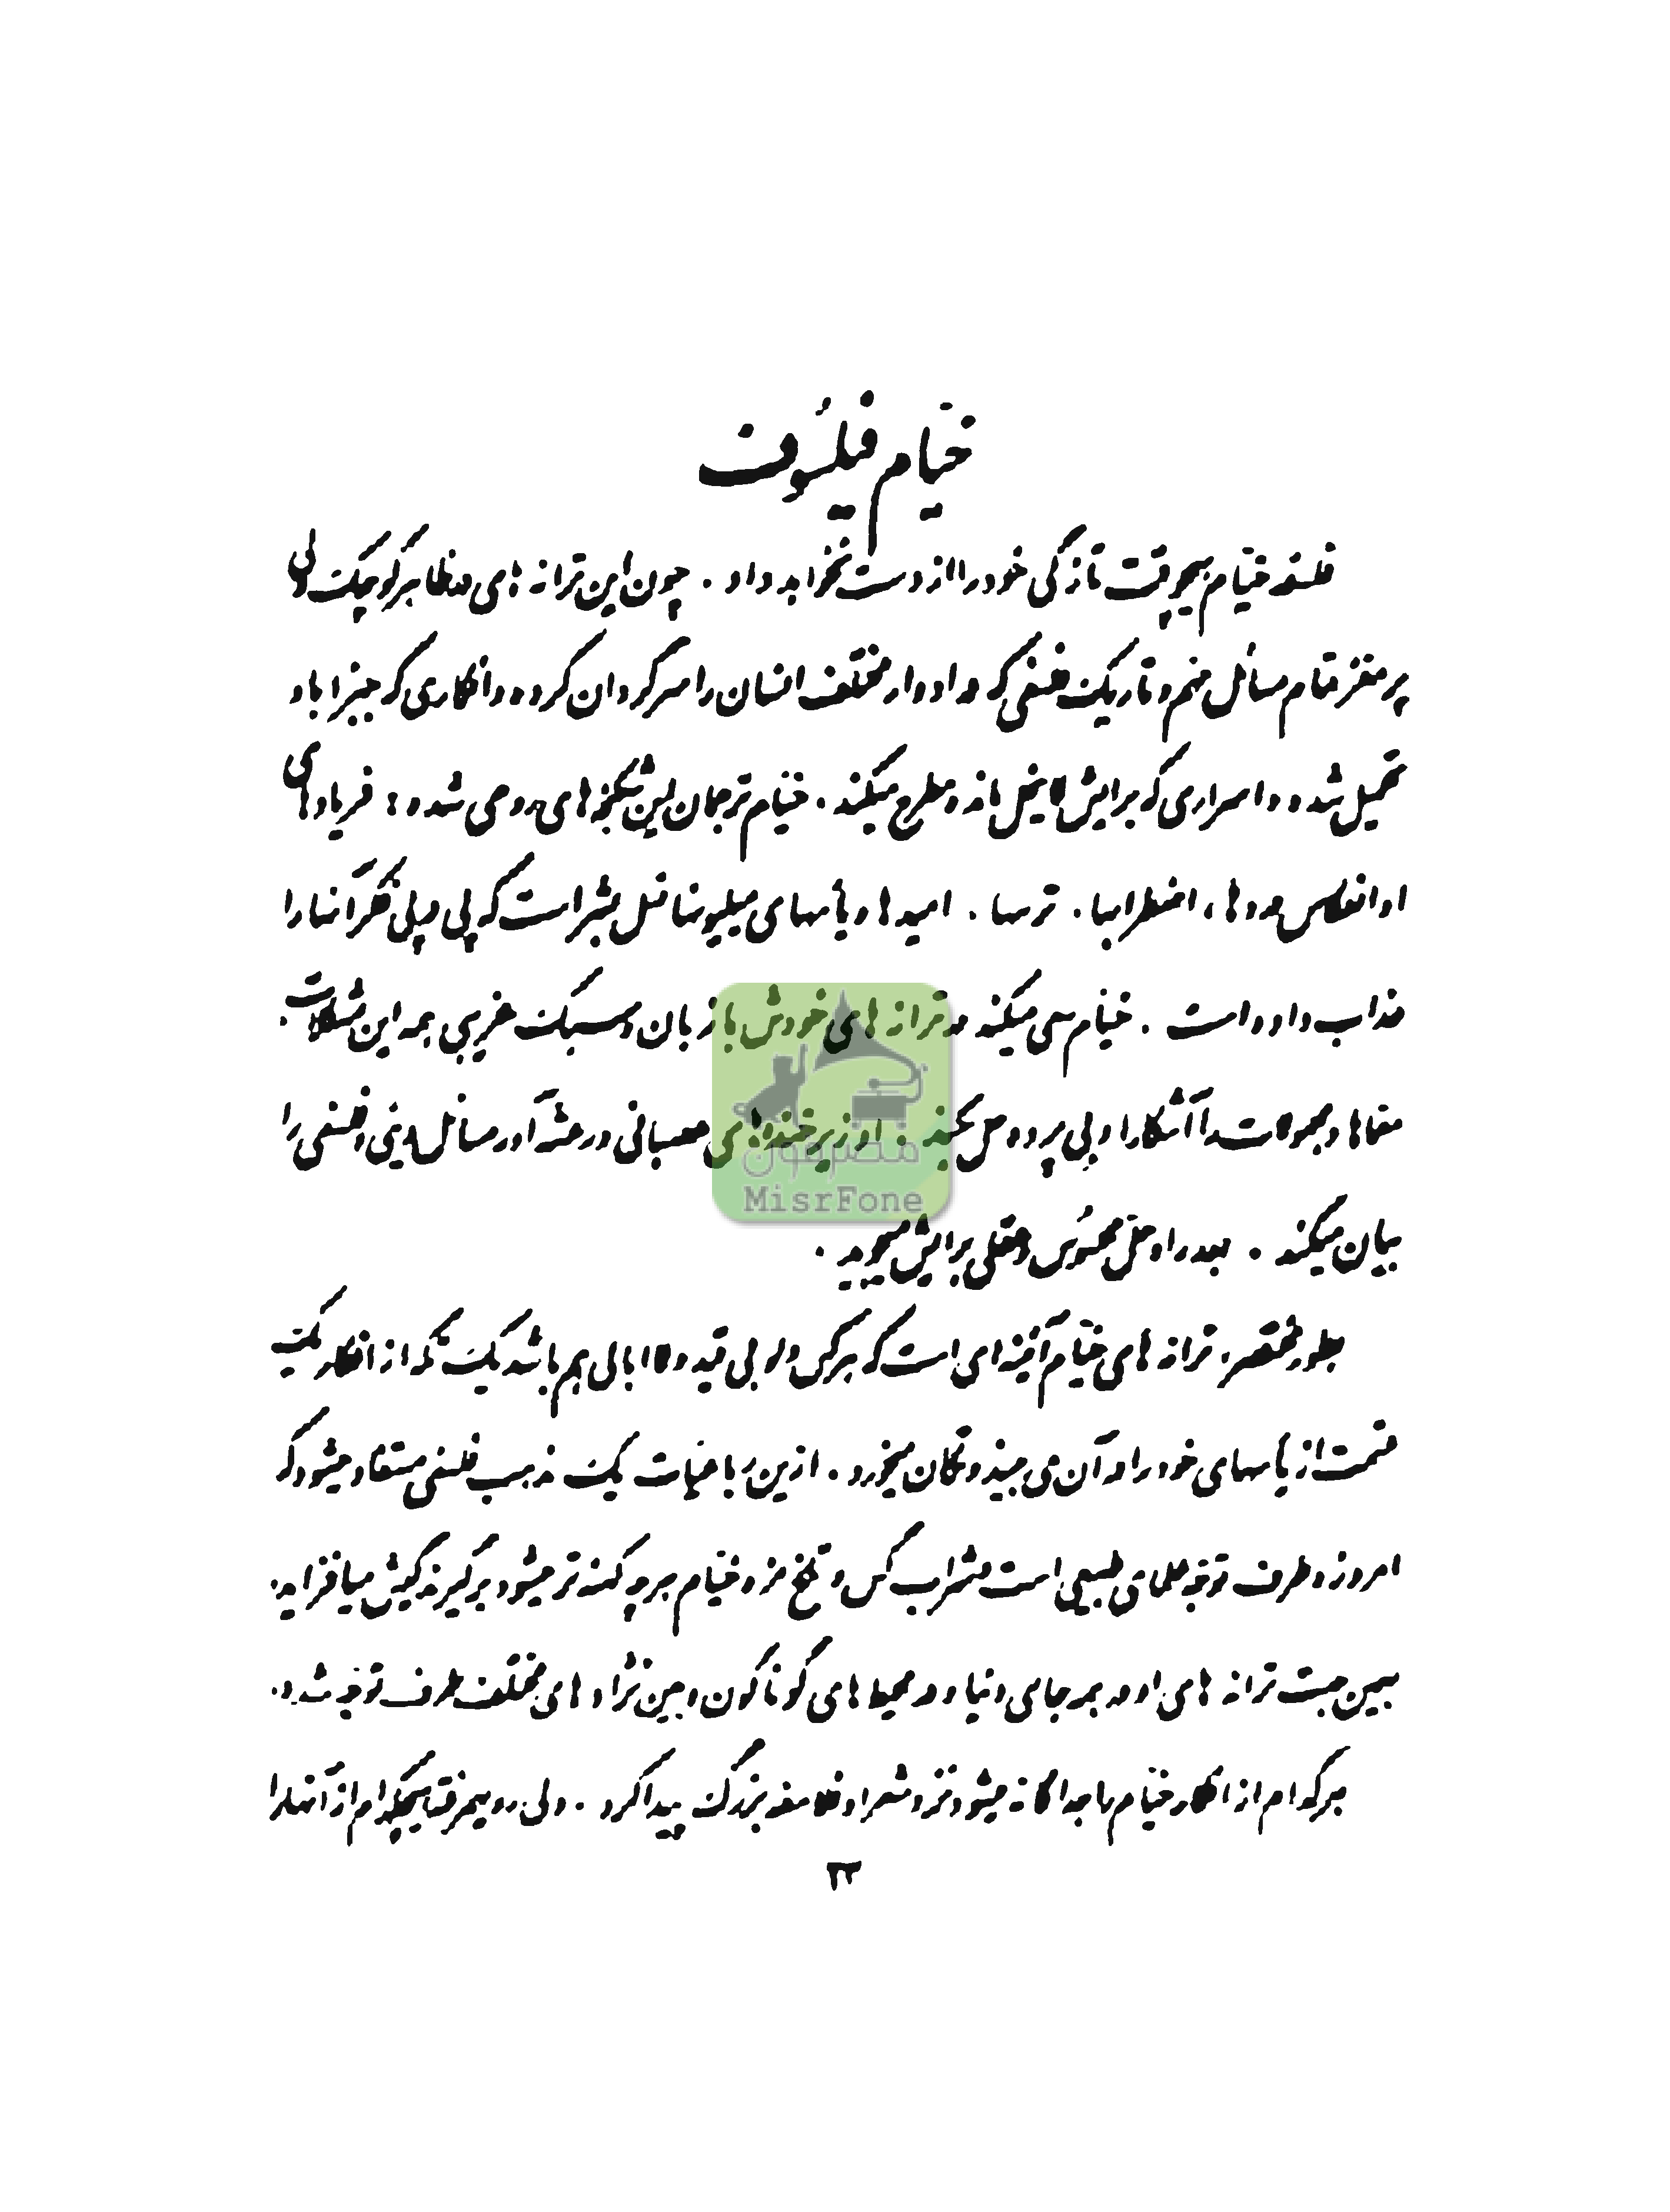 خیّام فیلسُوف
فلسفه خیّام هیچوقت تازگی خود را از دست نخواهد داد . چون این ترانه های در ظاهر کوچک ولی
پر مغز تمام مسائل مهم و تاریک فلسفی که در ادوار مختلف انسان را سرگردان کرده و افکاری که جبراً باو
تحمیل شده و اسراری که برایش لاینحل مانده مطرح میکند . خیّام ترجمان این شکنجه های روحی شده : فریادهای
او انعکاس دردها ، اضطرابها ، ترسها ، امیدها و یأسهای میلیونها نسل بشر است که پی در پی فکر آنها را
عذاب داده است . خیّام سعی میکند در ترانه های خودش با زبان و سبک غریبی همه این مشکلات ،
معماها و مجهولات را آشکارا و بی پرده حل بکند . او زیر خنده های عصبانی و رعشه آور مسائل دینی و فلسفی را
بیان میکند . بعد راه حلّ محسُوس و عقلی برایش میجوید .
بطور مختصر ، ترانه های خیّام آئینه ای است که هر کس ولو بی قید و لا ابالی هم باشد یک تکه از افکار ، یک
قسمت از یأسهای خود را در آن می بیند و تکان میخورد . ازین رباعیات یک مذهب فلسفی مستفاد میشود که
امروزه طرف توجّه علمای طبیعی است و شراب گس و تلخ مزه خیّام هر چه کهنه تر میشود بر گیرندگیش میافزاید .
بهمین جهت ترانه های او در همه جای دنیا و در محیط های گوناگون و بین نژاد های مختلف طرف توجّه شده .
هر کدام از افکار خیّام را جداگانه میشود نزد شعرا و فلاسفه بزرگ پیدا کرد . ولی رویهمرفته هیچکدام از آنها را